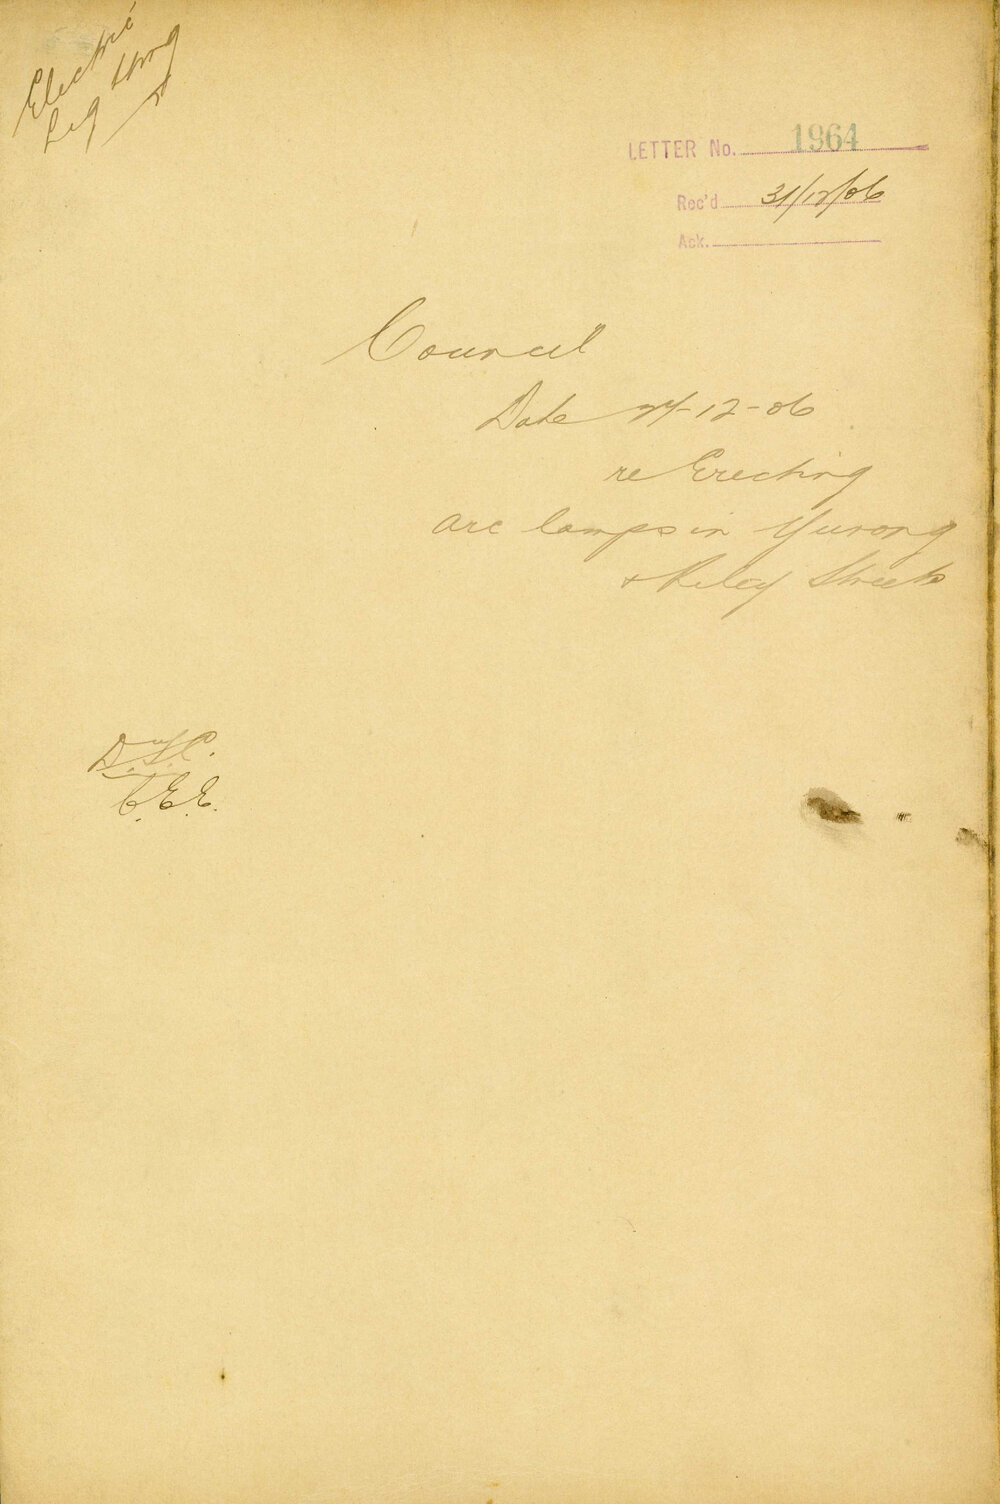 Electric
LETTER No. 1964
Rec'd 31/12/06
Ack.
Council
Date 27-12-06
re Erecting
arc lamps in Yurong
+ Riley Streets
C.E.E.